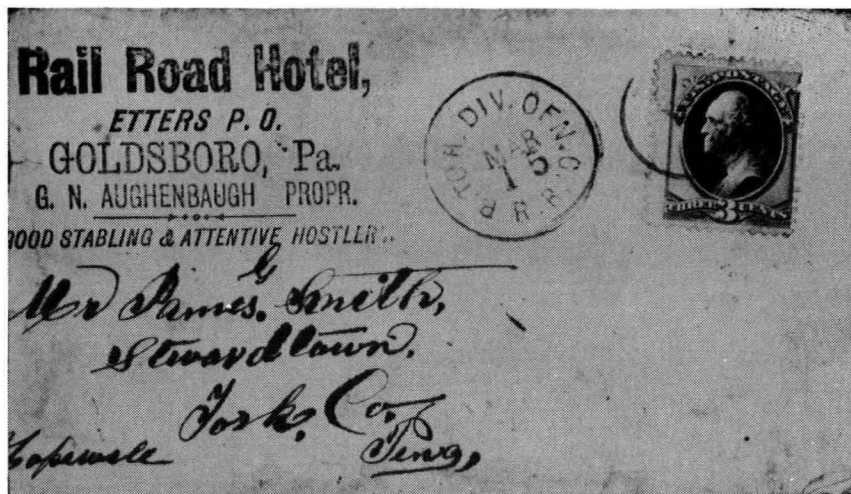 Rail Road Hotel,
ETTERS P. O.
GOLDSBORO, Pa.
G. N. AUGHENBAUGH PROPR.
GOOD STABLING & ATTENTIVE HOSTLERS.
P. TOR. DIV. OF N. C. R. R.
MAR
1
THREE 3 CENTS
Mr James. G Smith,
Stewardtown.
York, Co.
Hopewell Penna,